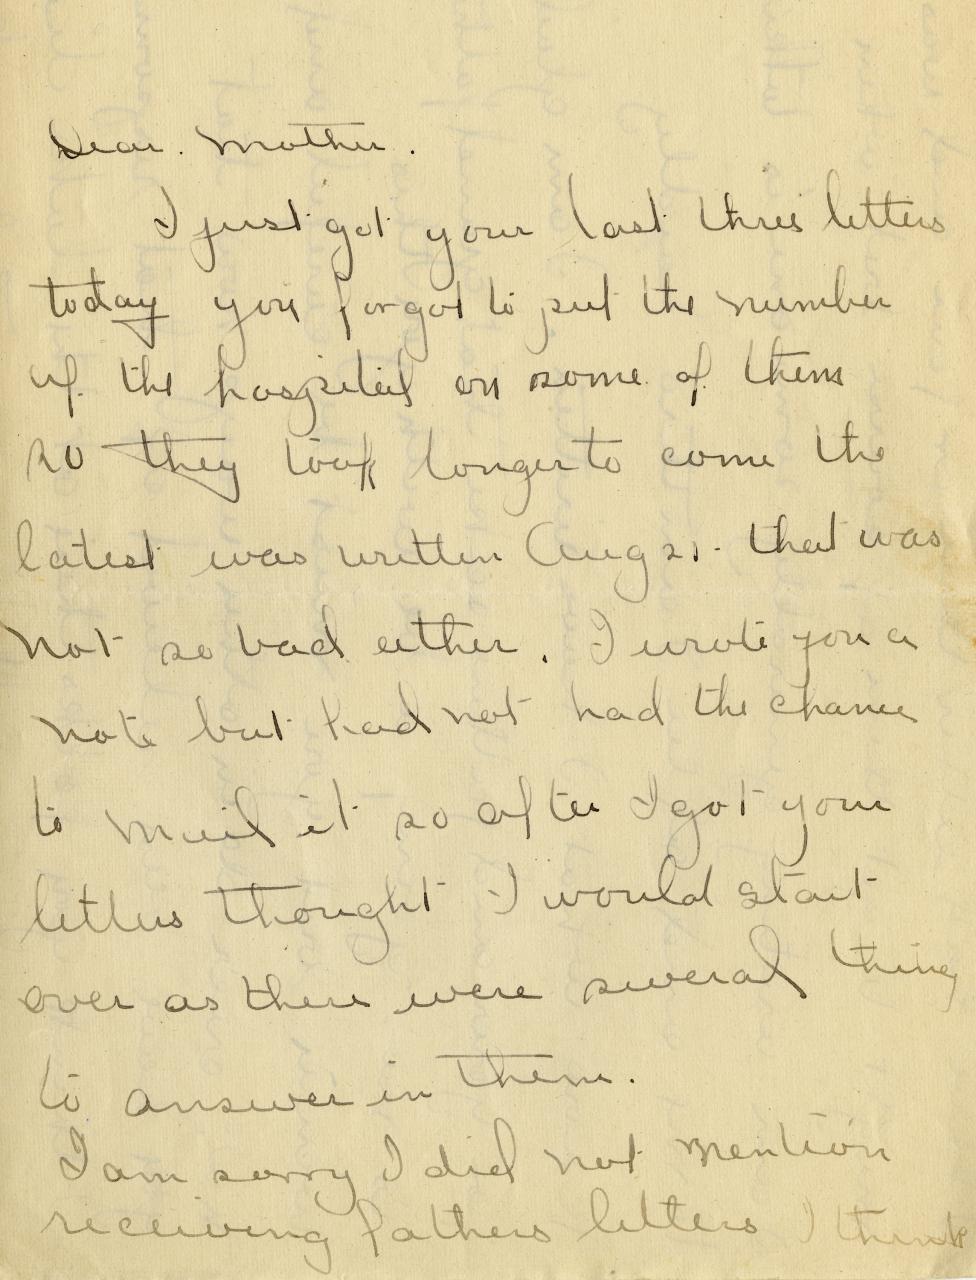 Dear. Mother.
I just got your last three letters
today you forgot to put the number
of the hospital on some of them
so they took longer to come the
latest was written Aug 21. that was
not so bad either. I wrote you a
note but had not had the chance
to mail it so after I got your
letters thought I would start
over as there were several thing
to answer in them.
I am sorry I did not mention
receiving fathers letters I think